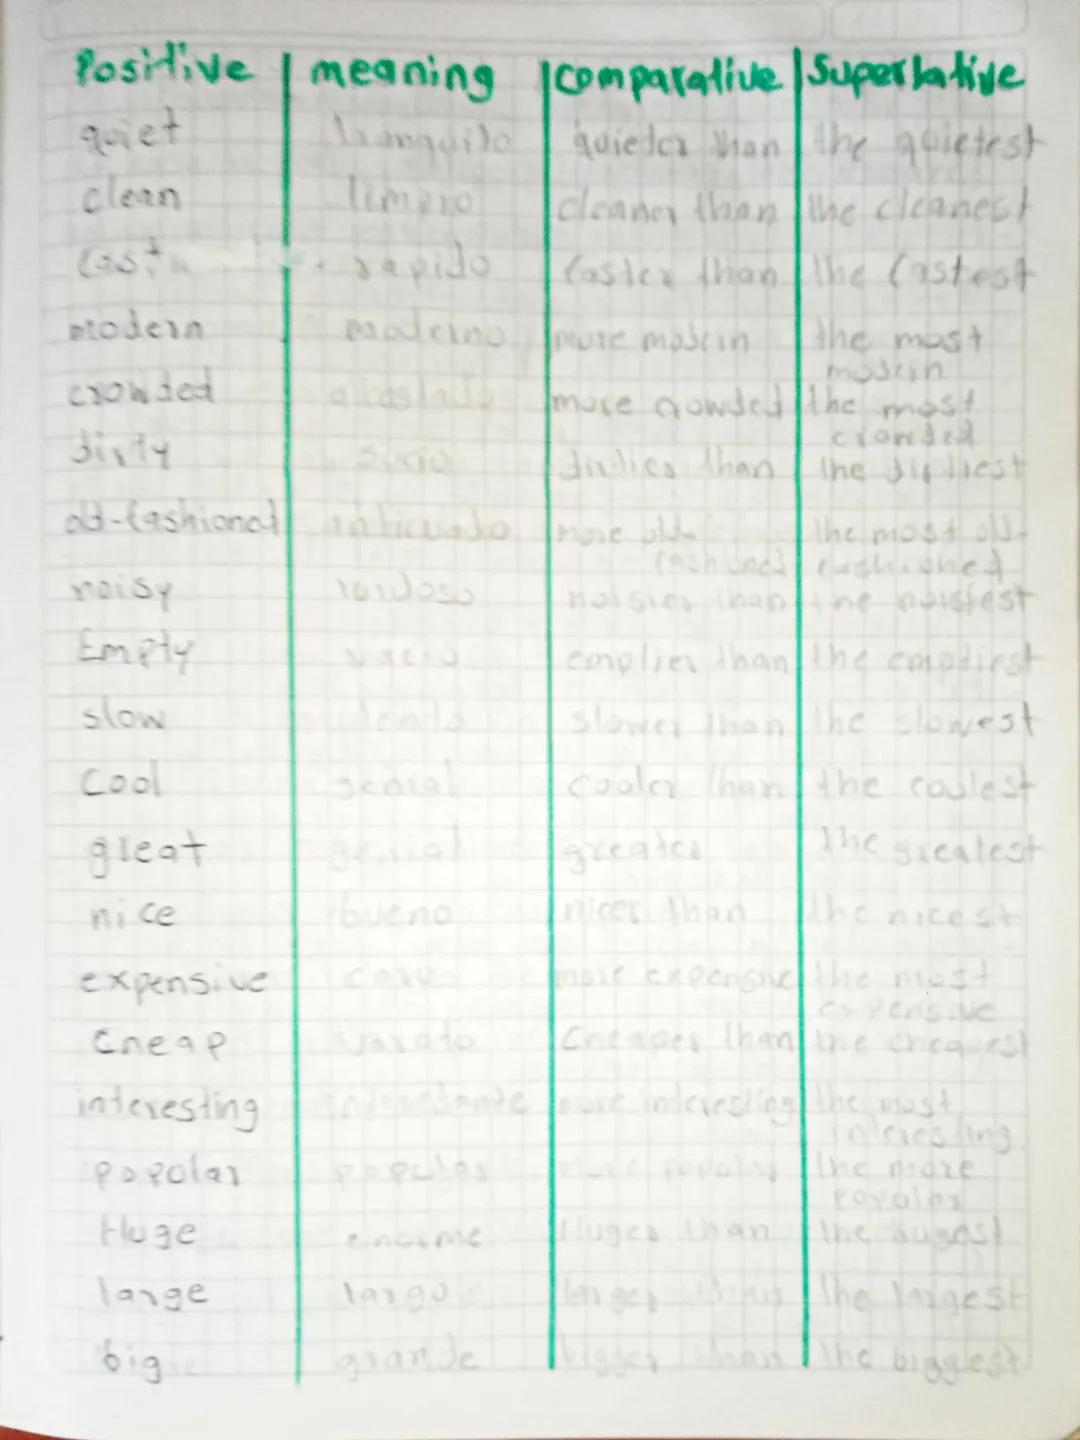 Positive meaning comparative Superlative
quiet tranquilo quieter than the quietest
clean limpio cleaner than the cleanest
fast rapido faster than the fastest
modern moderno more modern the most
modern
crowded more crowded the most
crowded
dirty sucio dirtier than the dirtiest
old-fashioned anticuado more old- the most old-
fashioned fashioned
noisy ruidoso noisier than the noisiest
Empty vacio emptier than the emptiest
slow slower than the slowest
Cool genial cooler than the coolest
great genial greater the greatest
nice bueno nicer than the nicest
expensive caro more expensive the most
expensive
Cheap varato Cheaper than the cheapest
interesting interesante more interesting the most
interesting
popolar popular more popular the more
popolar
Huge enorme Huger than the hugest
large largo larger than the largest
big grande bigger than the biggest